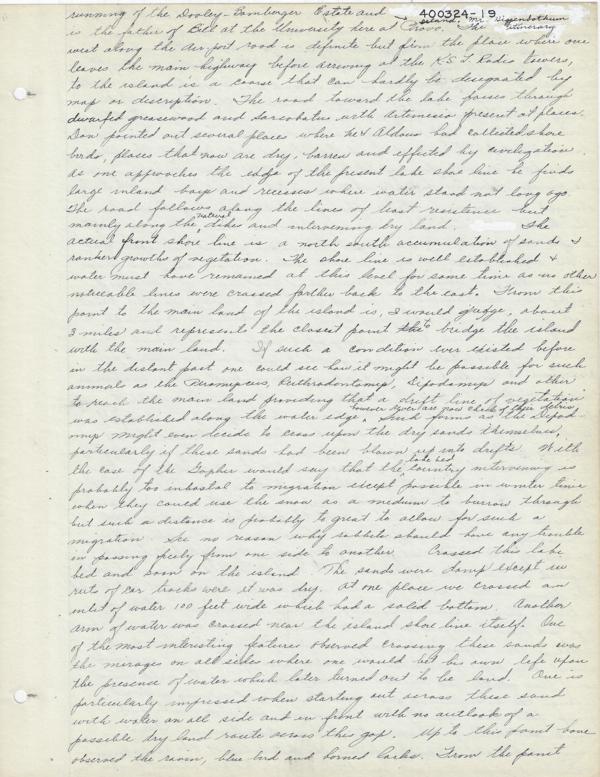 400324-19
running of the Dooley-Bamberger Estate and → island. Mr. Higgenbothum
is the father of Bill at the University here at Provo. The itinerary
west along the air-port road is definite but from the place where one
leaves the main highway before arriving at the K.S.L. Radio towers,
to the island is a course that can hardly be designated by
map or discription. The road toward the lake passes through
dwarfed greasewood and sarcobatus with Artemesia present at places.
Don pointed out several places where he & Aldous had collected shore
birds, places that now are dry, barren and effected by civilization.
As one approaches the edge of the present lake shore line he finds
large inland bays and recesses where water stood not long ago.
The road follows along the lines of least resistance but
mainly along the natural dikes and intervening dry land. The
actual front shore line is a north south accumulation of sands &
rankest growths of vegetation. The shore line is well established &
water must have remained at this level for some time as no other
noticeable lines were crossed farther back to the east. From this
point to the main land of the island is, I would judge, about
3 miles and represents the closest point to bridge the island
with the main land. If such a condition ever existed before
in the distant past one could see how it might be possible for such
animals as the Peromyscus, Reithrodontomys, Dipodomys and other
to reach the main land providing that a drift line of vegetation
was established along the water edge. however there are now chains of such debris
Sand forms as the Dipod-
omys might even decide to cross upon the dry sands themselves,
particularly if these sands had been blown up into drifts. With
the case of the Gopher would say that the lake bed country intervening is
probably too inhostal to migration except possible in winter time
when they could use the snow as a medium to burrow through
but such a distance is probably to great to allow for such a
migration. See no reason why rabbits should have any trouble
in passing freely from one side to another. Crossed this lake
bed and soon on the island. The sands were damp except in
ruts of car tracks were it was dry. At one place we crossed an
inlet of water 100 feet wide which had a solid bottom. Another
arm of water was crossed near the island shore line itself. One
of the most interesting features observed crossing these sands was
the merages on all sides where one would bet his own life upon
the presence of water which later turned out to be land. One is
particularly impressed when starting out across these sand
with water on all side and in front with no outlook of a
possible dry land route across this gap. Up to this point have
observed the raven, blue bird and horned larks. From the point